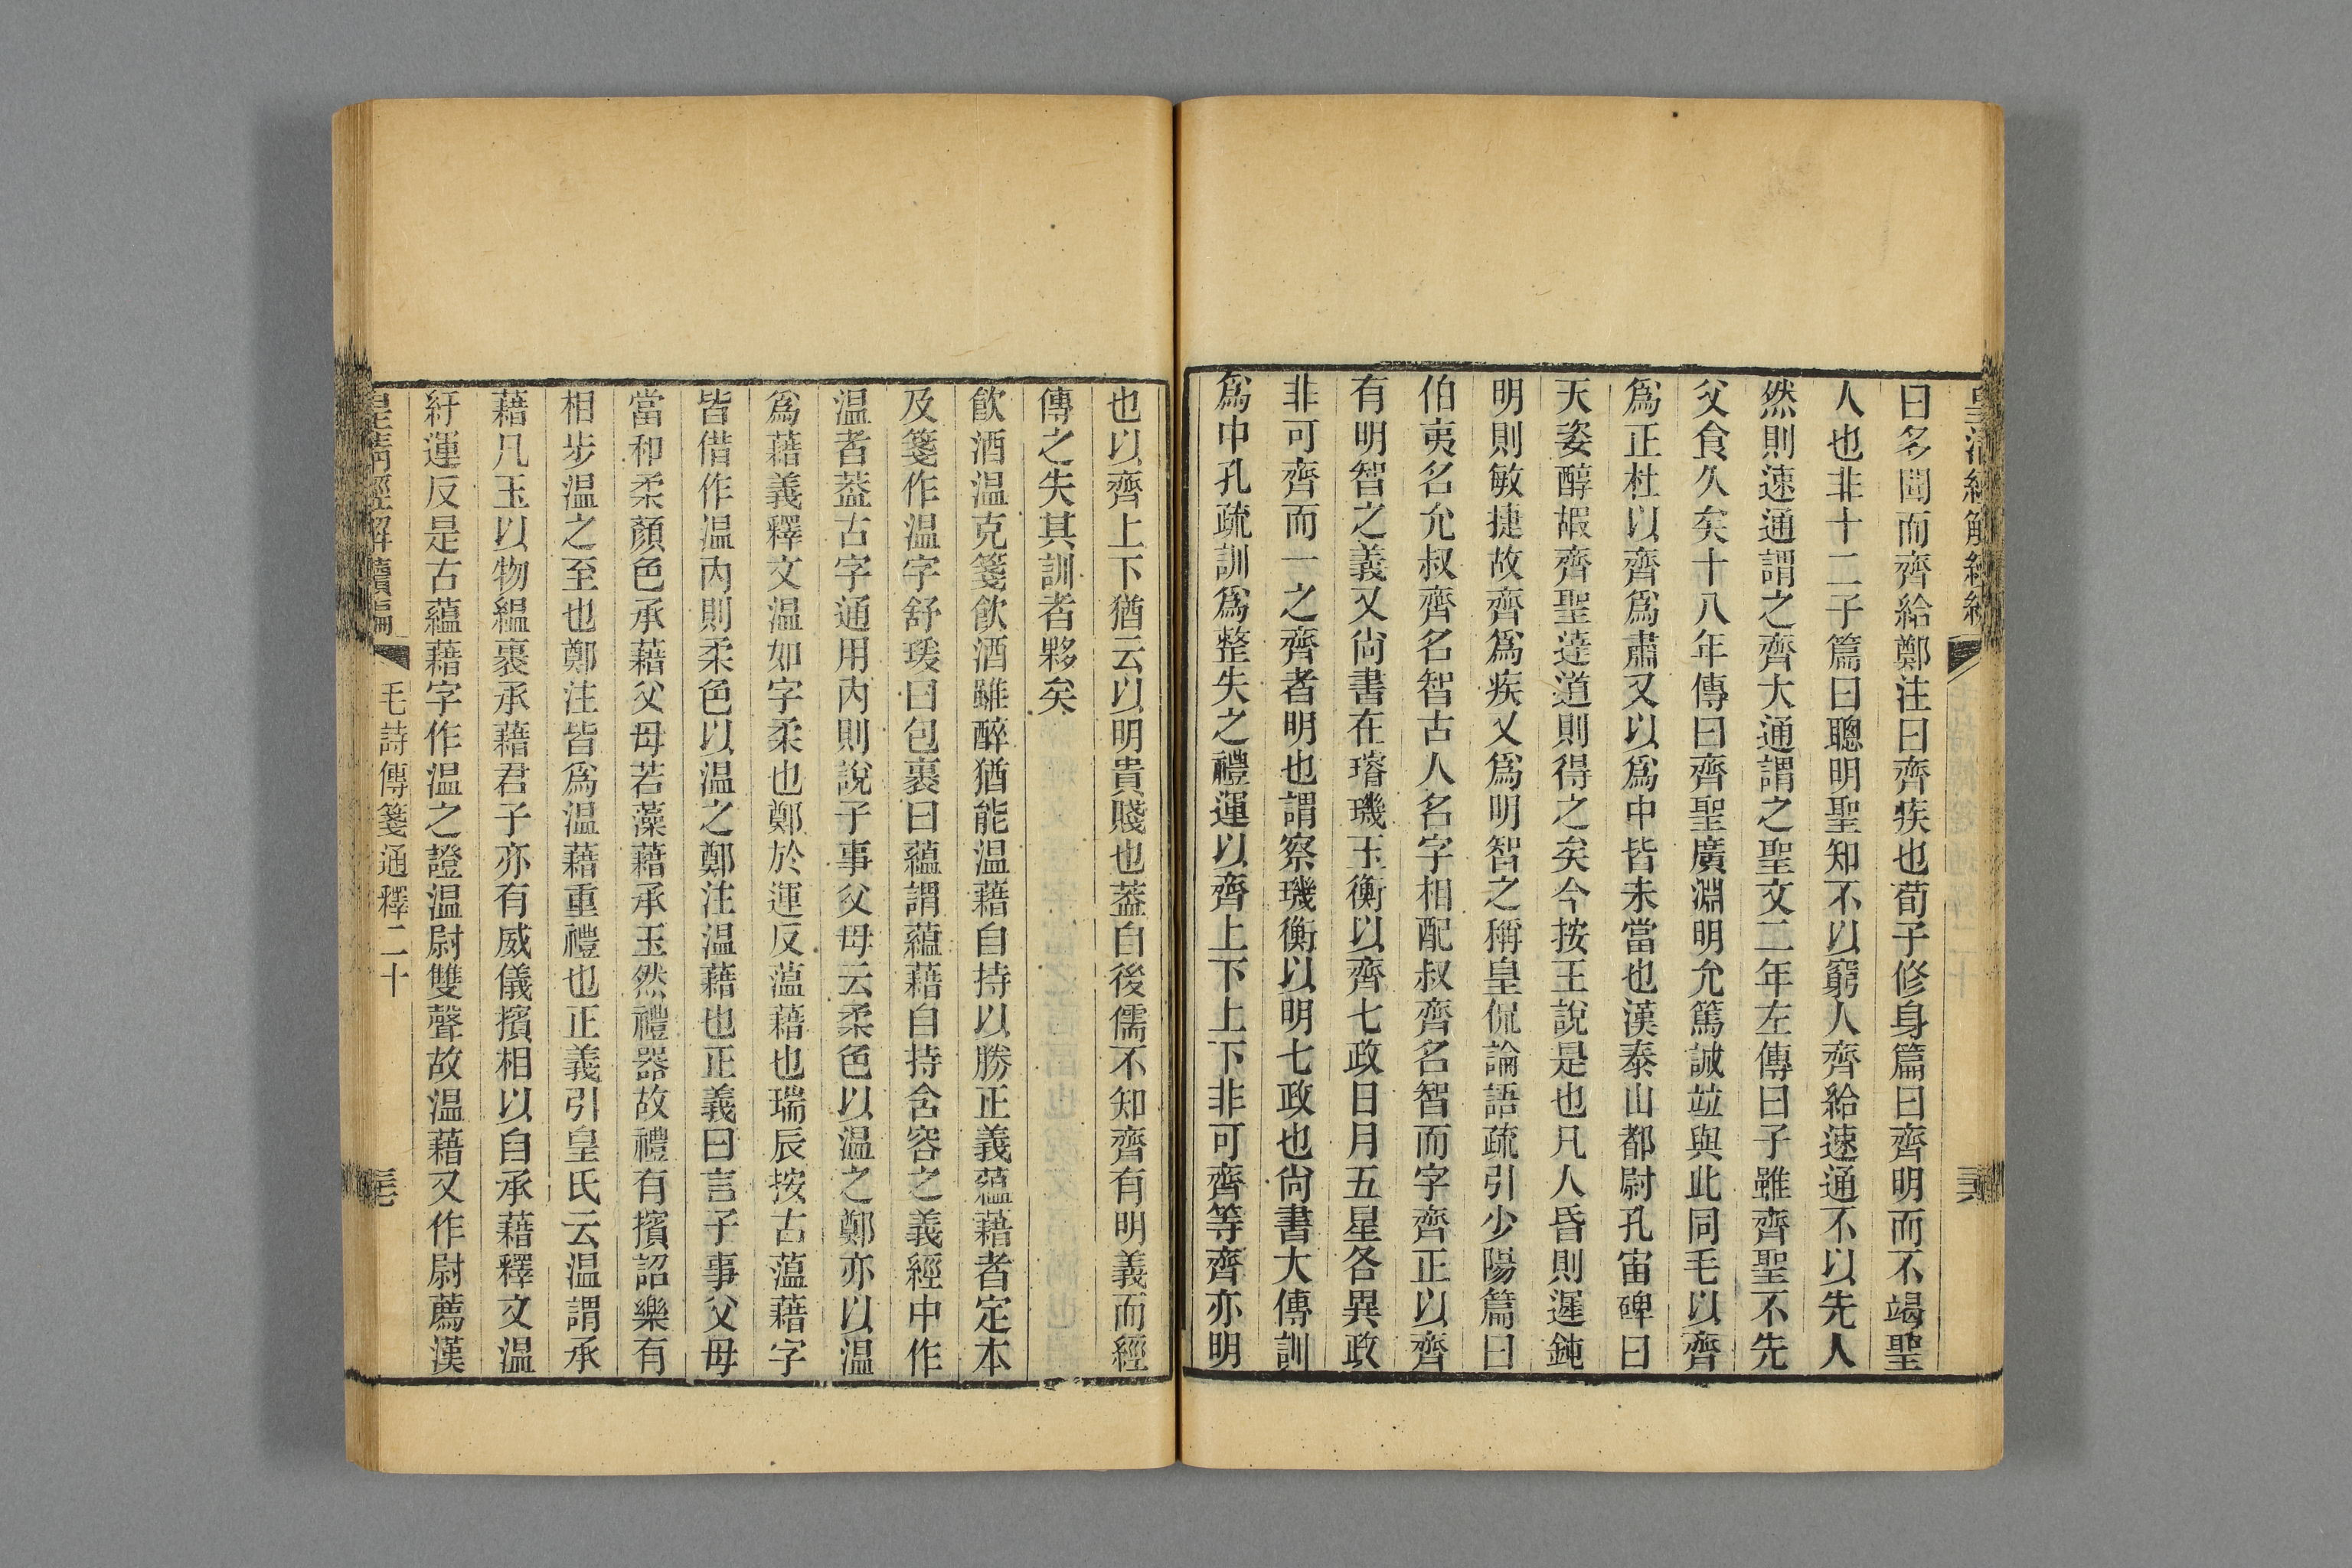 曰多聞而齊給鄭注曰齊疾也荀子修身篇曰齊明而不竭聖
人也非十二子篇曰聰明聖知不以窮人齊給速通不以先人
然則速通謂之齊大通謂之聖文二年左傳曰子雖齊聖不先
父食久矣十八年傳曰齊聖廣淵明允篤誠竝與此同毛以齊
爲正杜以齊爲肅又以爲中皆未當也漢泰山都尉孔宙碑曰
天姿醇嘏齊聖達道則得之矣今按王說是也凡人昏則遲鈍
明則敏捷故齊爲疾又爲明智之稱皇侃論語疏引少陽篇曰
伯夷名允叔齊名智古人名字相配叔齊名智而字齊正以齊
有明智之義又尙書在璿璣玉衡以齊七政日月五星各異政
非可齊而一之齊者明也謂察璣衡以明七政也尙書大傳訓
爲中孔疏訓爲整失之禮運以齊上下上下非可齊等齊亦明
也以齊上下猶云以明貴賤也葢自後儒不知齊有明義而經
傳之失其訓者夥矣
飮酒温克箋飮酒雖醉猶能温藉自持以勝正義蘊藉者定本
及箋作温字舒瑗曰包裹曰蘊謂蘊藉自持含容之義經中作
温者葢古字通用內則說子事父母云柔色以温之鄭亦以温
爲藉義釋文温如字柔也鄭於運反薀藉也瑞辰按古薀藉字
皆借作温內則柔色以温之鄭注温藉也正義曰言子事父母
當和柔顏色承藉父母若藻藉承玉然禮器故禮有擯詔樂有
相步温之至也鄭注皆爲温藉重禮也正義引皇氏云温謂承
藉凡玉以物緼裹承藉君子亦有威儀擯相以自承藉釋文温
紆運反是古蘊藉字作温之證温尉雙聲故温藉又作尉薦漢
皇淸經解續編 毛詩傳箋通釋二十